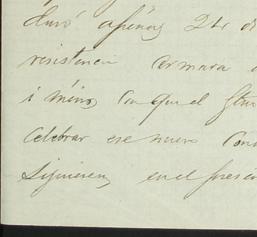 duró apenas 24 d
resistencia armada
i ménos con que el
celebrar ese nuevo Con
siguieren en el presen